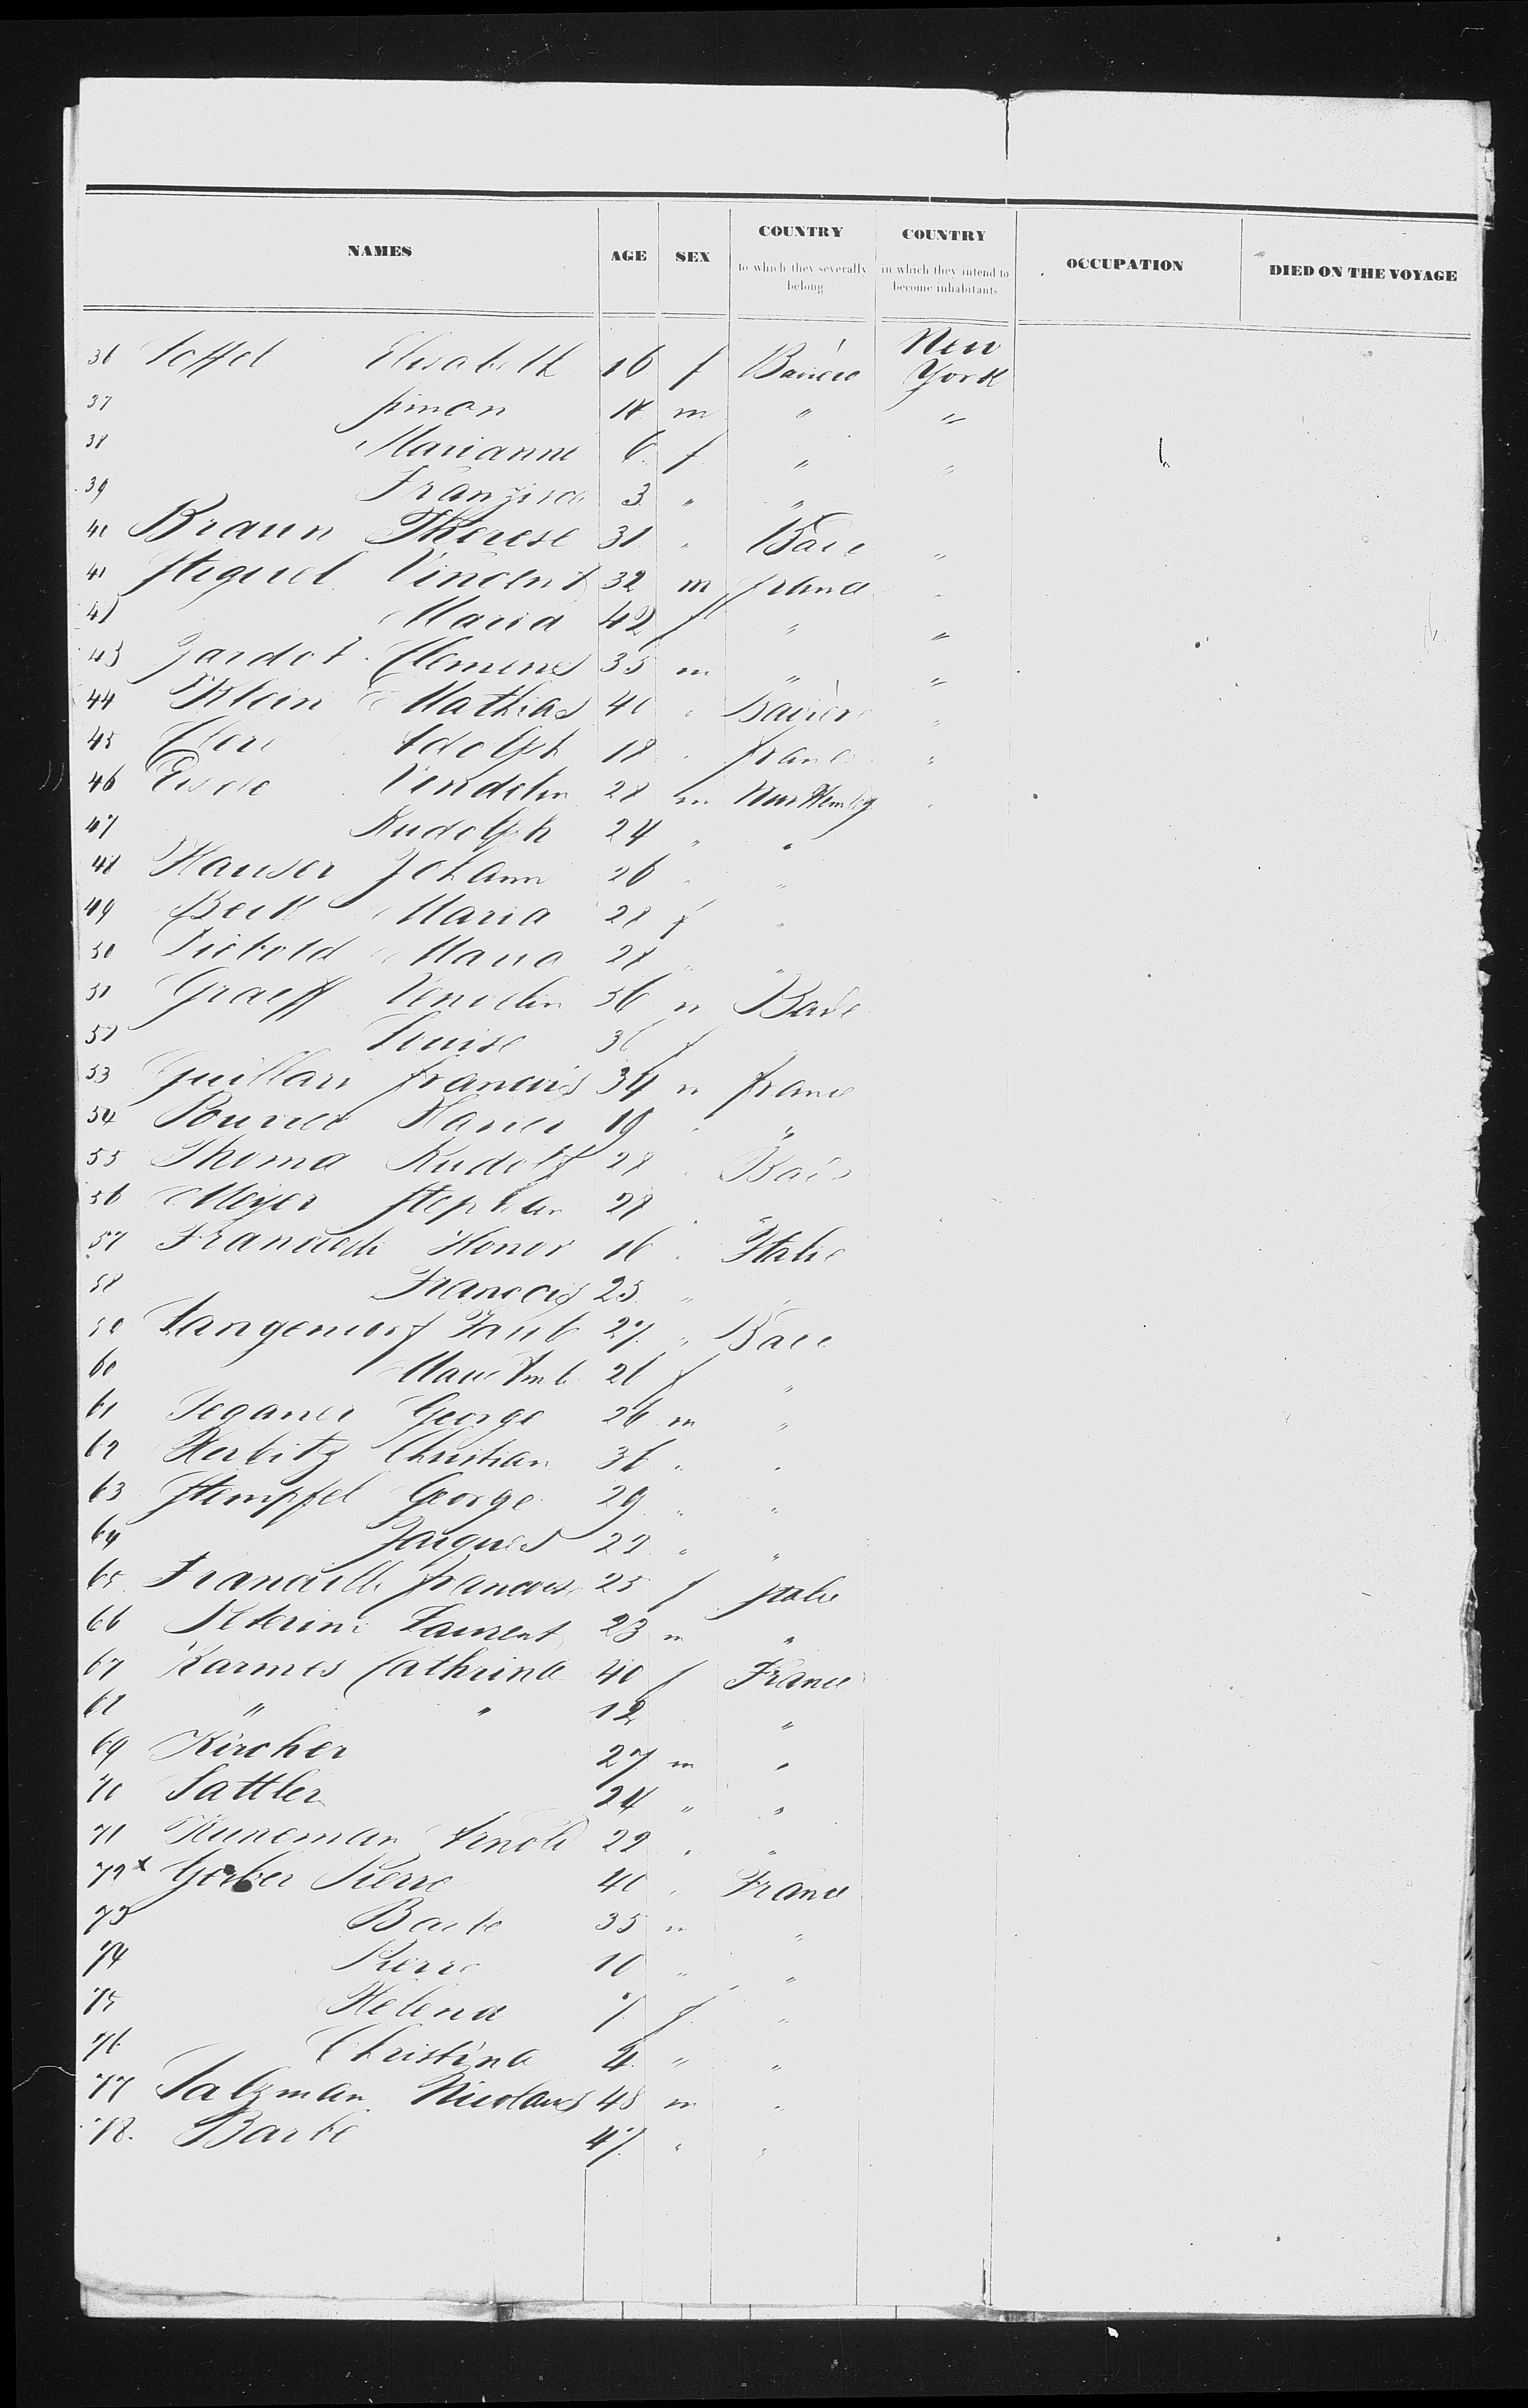 NAMES AGE SEX COUNTRY to which they severally belong COUNTRY in which they intend to become inhabitants OCCUPATION DIED ON THE VOYAGE
36 Elisabeth 16 f Baviere New York
37 Simon 18 m " "
38 Marianne 6 f " "
39 Franzisca 3 " "
Braun Therese 31 " Bade "
41 Stiquel Vincent 32 m france "
Maria 42 f " "
43 Jardot Clemens 35 m " "
44 Klein Mathias 40 " Baviere "
45 Adolph 18 " france "
46 Vendelin 28 m Wurttemberg "
47 Rudolph 24 " "
48 Hauser Johann 26 " "
49 Beck Maria 28 f "
50 Diebold Maria 28 " "
51 Graeff Vendelin 36 m Bade
52 Louise 36 f "
53 Guillari francois 34 m france
54 19 " "
55 Thoma Rudolf 28 " Bade
56 Meyer Stephan 28 " "
57 Honor 16 " Italie
58 Francois 25 " "
59 Langendorf 27 " Bade
60 26 f "
61 George 26 m "
62 Herbitz Christian 36 " "
63 Stempfel George 29 " "
64 Jacques 22 " "
65 francoise 25 f Italie
66 Laurent 23 m "
67 Karmes Cathrina 40 f France
68 " " 12 "
69 Kircher 27 m "
70 Sattler 24 " "
71 Kuneman Arnold 22 " "
72 x Gerber Pierre 40 " France
73 Barbe 35 m "
74 Pierre 10 " "
75 Helena 7 f "
76 Christina 4 " "
77 Salzman Nicolaus 48 m "
78. Barbe 47 " "